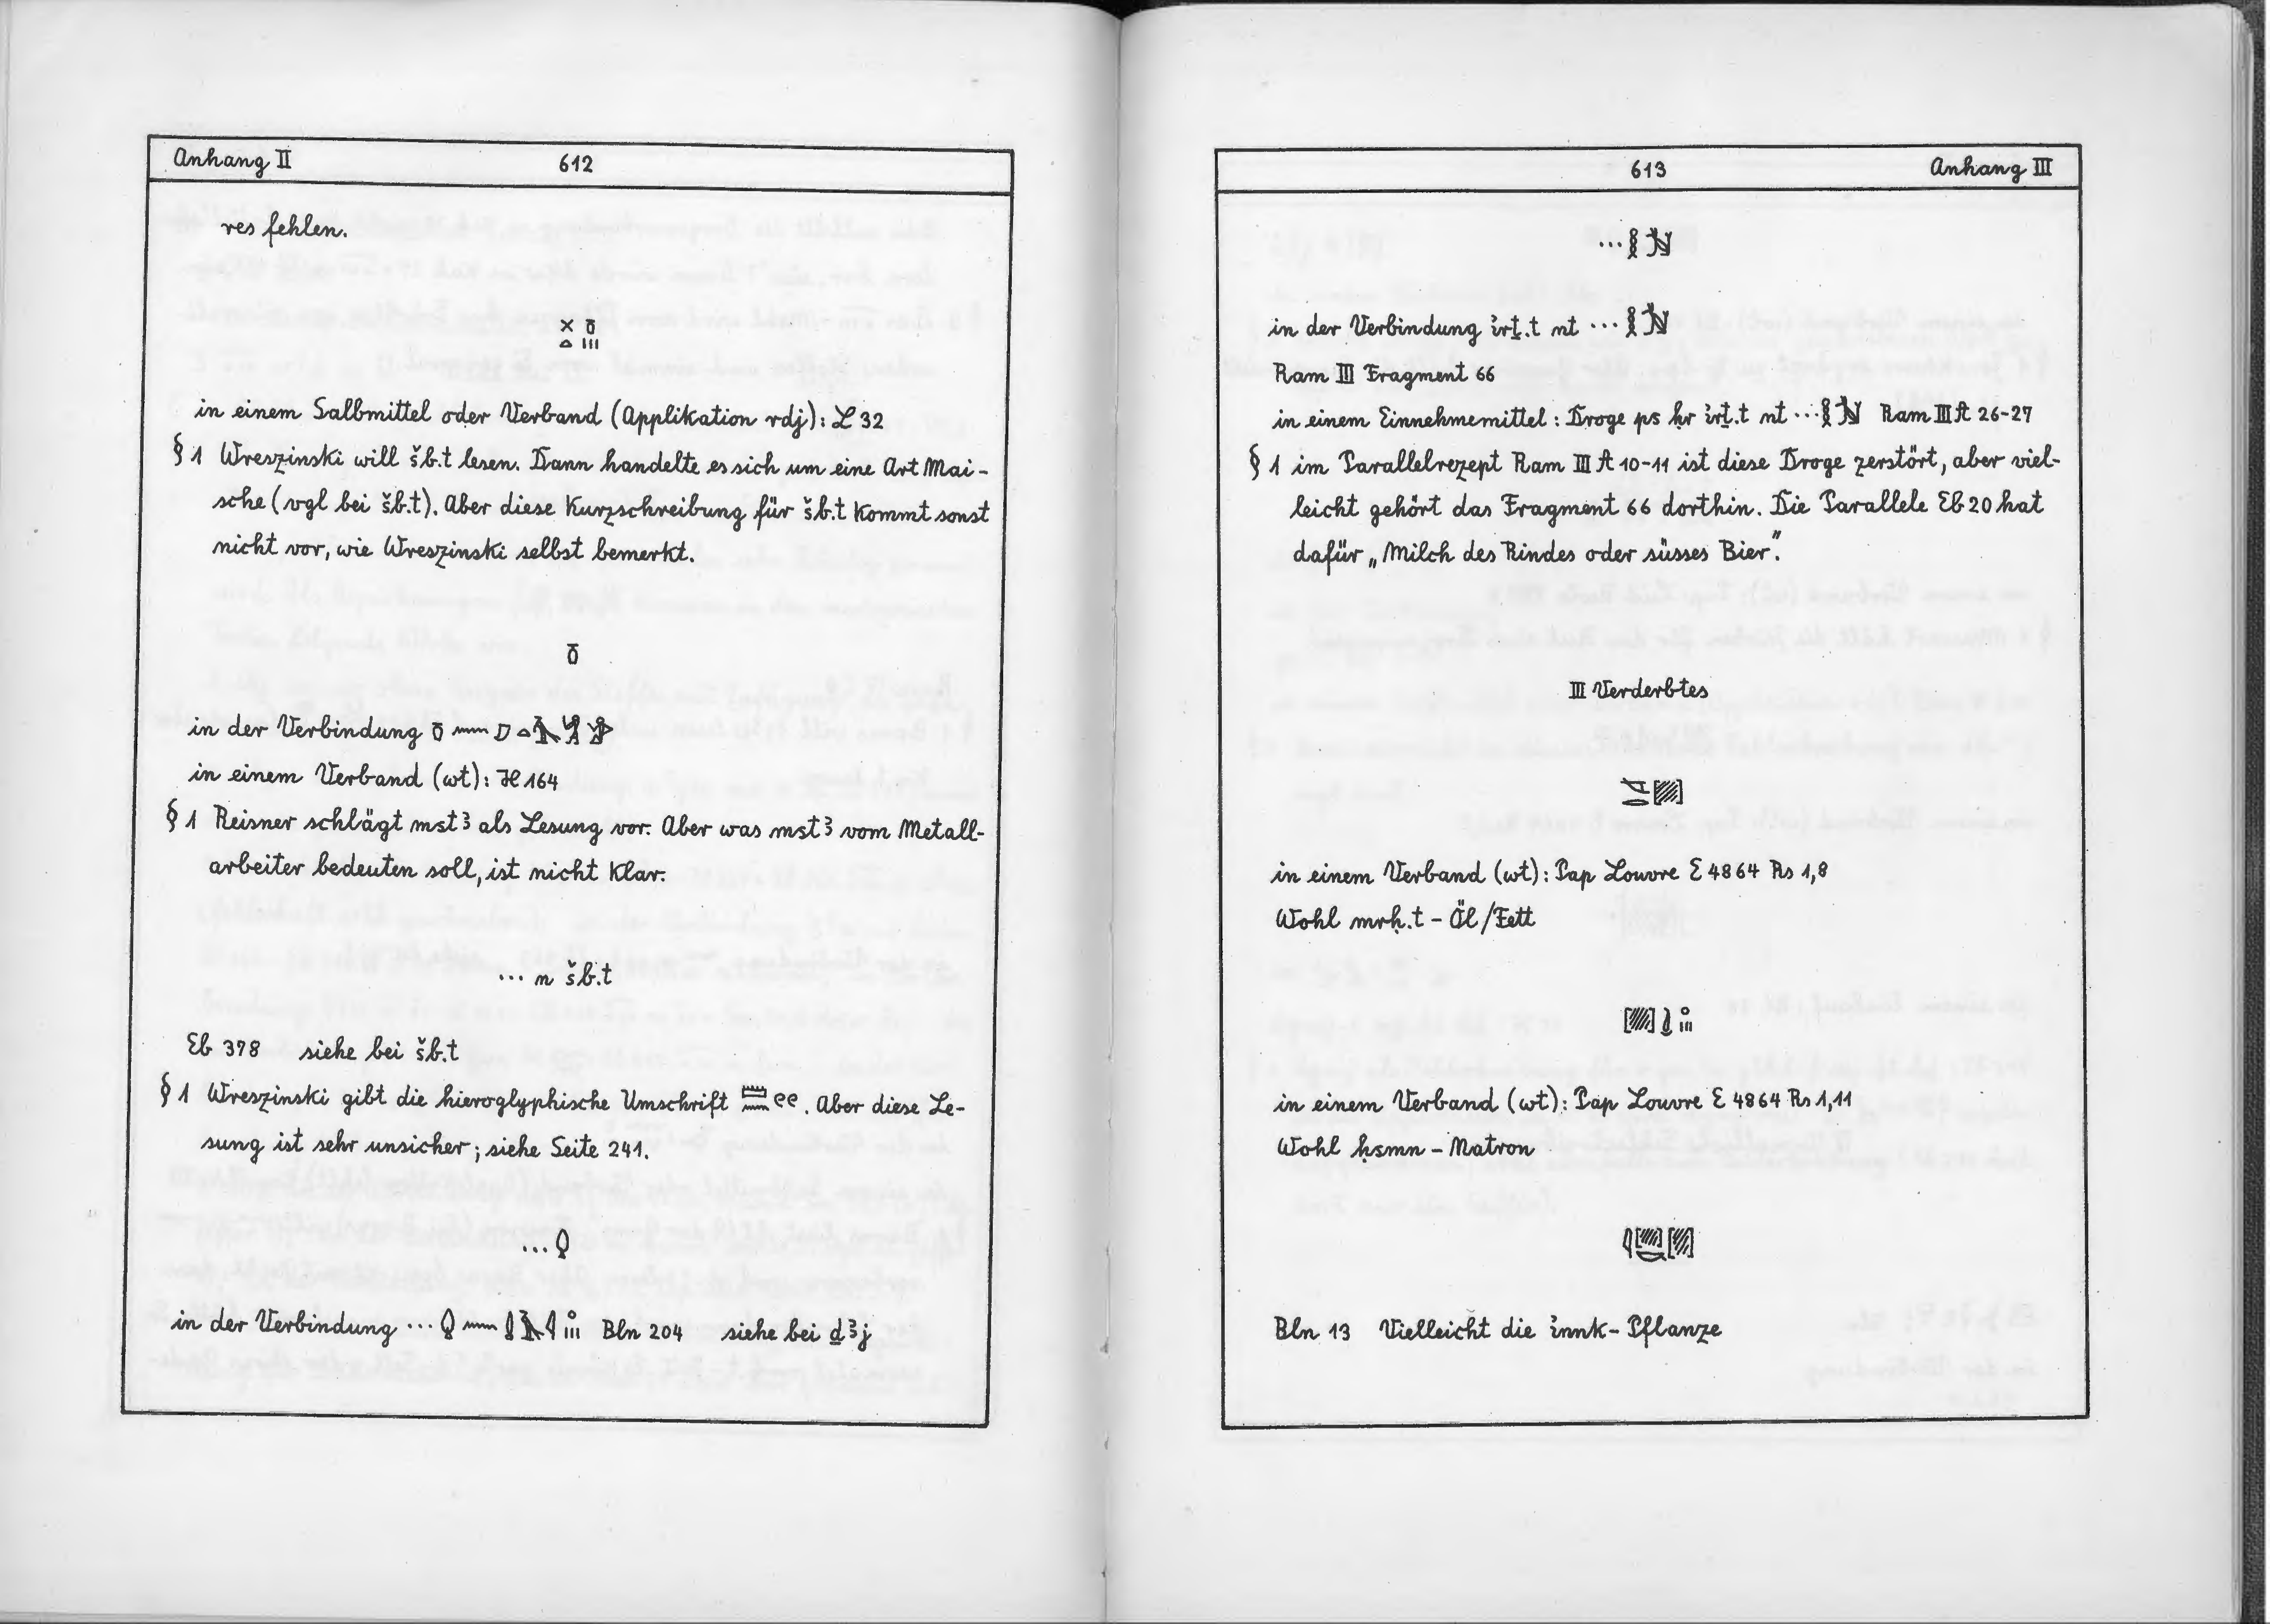 Anhang II 612
res fehlen.
in einem Salbmittel oder Verband (Applikation rdj): L 32
§ 1 Wreszinski will šb.t lesen. Dann handelte es sich um eine Art Mai-
sche (vgl bei šb.t). Aber diese Kurzschreibung für šb.t kommt sonst
nicht vor, wie Wreszinski selbst bemerkt.
in der Verbindung
in einem Verband (wt): H 164
§ 1 Reisner schlägt mstꜣ als Lesung vor. Aber was mstꜣ vom Metall-
arbeiter bedeuten soll, ist nicht klar.
... n šb.t
Eb 378 siehe bei šb.t
§ 1 Wreszinski gibt die hieroglyphische Umschrift . Aber diese Le-
sung ist sehr unsicher; siehe Seite 241.
...
in der Verbindung ... Bln 204 siehe bei ḏꜣj
613 Anhang III
...
in der Verbindung i҆rṯ.t nt ...
Ram III Fragment 66
in einem Einnehmemittel: Droge ps ḥr i҆rṯ.t nt ... Ram III A 26-27
§ 1 im Parallelrezept Ram III A 10-11 ist diese Droge zerstört, aber viel-
leicht gehört das Fragment 66 dorthin. Die Parallele Eb 20 hat
dafür „Milch des Rindes oder süsses Bier".
III Verderbtes
in einem Verband (wt): Pap Louvre E 4864 Rs 1,8
Wohl mrḥ.t - Öl/Fett
in einem Verband (wt): Pap Louvre E 4864 Rs 1,11
Wohl ḥsmn - Natron
Bln 13 Vielleicht die i҆nnk-Pflanze